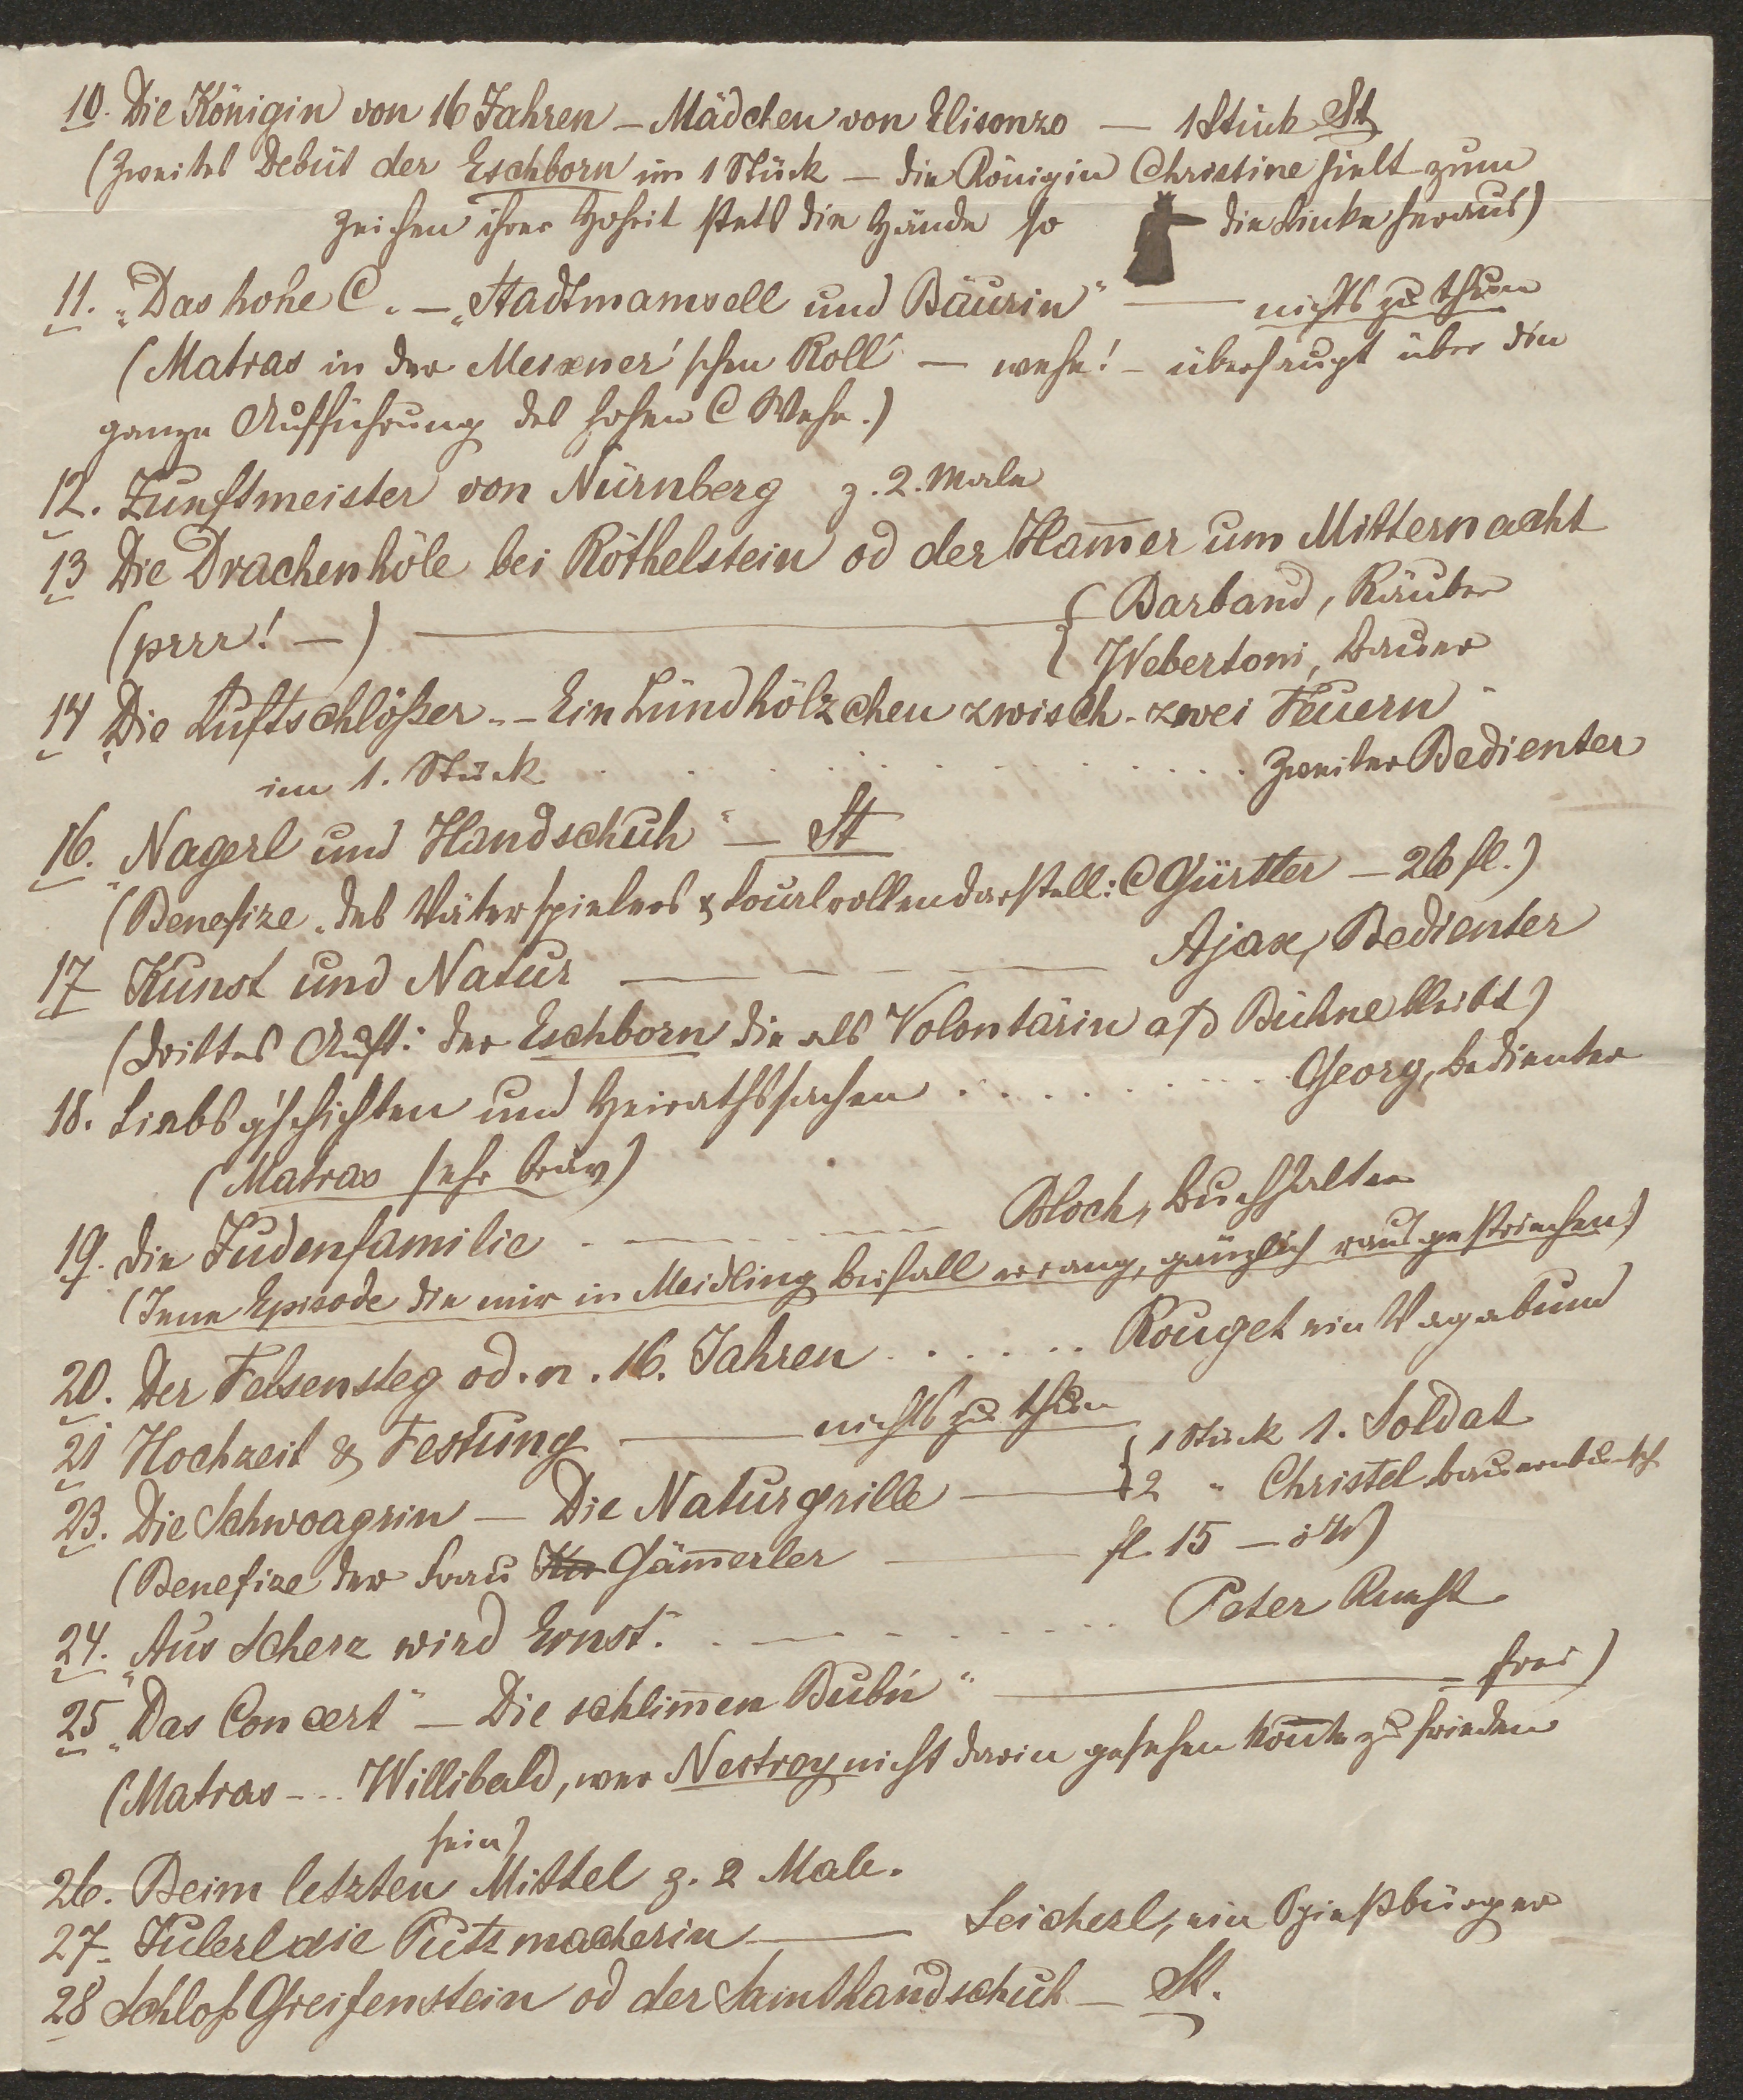 10. Die Königin von 16 Jahren – Mädchen von Elisonzo — 1 Stück St
(Zweites Debüt der Eschborn im 1 Stück – die Königin Christine hielt zum
Zeichen ihrer Hoheit stets die Hände so die Linke heraus)
11. „Das hohe C„ – „Stadtmamsell und Bäurin" — nichts zu thun
(Matras in der Meixner'schen Roll' — wehe! – überhaupt über die
ganze Aufführung des hohen C Wehe.)
12. Zunftmeister von Nürnberg z. 2. Male
13 Die Drachenhöle bei Röthelstein od der Ham̅er um Mitternacht
(prrr! —) — { Barband, Räuber
Webertoni, Bauer
14 „Die Luftschlößer„ – Ein Zündhölzchen zwisch. zwei Feuern"
im 1. Stück . . . . . . . . . . . Zweiter Bedienter
16. „Nagerl und Handschuh" — St
(Benefize „des Väterspielers & Localrollendarstell: C Gürtler – 26 fl.)
17 Kunst und Natur — – – — Ajax, Bedienter
(Drittes Auft: der Eschborn die als Volontärin a/d Bühne bleibt)
18. Liebsg'schichten und Heirathssachen . . . . . . . . . Georg, Bedienter
(Matras sehr brav)
19. Die Judenfamilie . — . . — Bloch, Buchhalter
(Jene Episode die mir in Meidling Beifall errang, gänzlich rausgestrichen)
20. Der Felsensteg od. n. 16. Jahren . . . . . . Rouget ein Vagabund
21 Hochzeit & Festung — nichts zu thun
23. Die Schwoagrin – Die Naturgrille — } 1 Stück 1. Soldat
2 „ Christel Bauernbursch
(Benefize der Frau Gäm̅erler — fl. 15 – öW)
24. „Aus Scherz wird Ernst." . – – . . . . . . Peter Runst
25 „Das Concert" – Die schlim̅en Bub'n" — frei)
(Matras – .. Willibald, wer Nestroy nicht darin gesehen kon̅te zufrieden
sein)
26. Beim letzten Mittel z. 2 Male.
27. Julerl die Putzmacherin — Leicherl, ein Spießbürger
28 Schloß Greifenstein od der Samthandschuh – St.